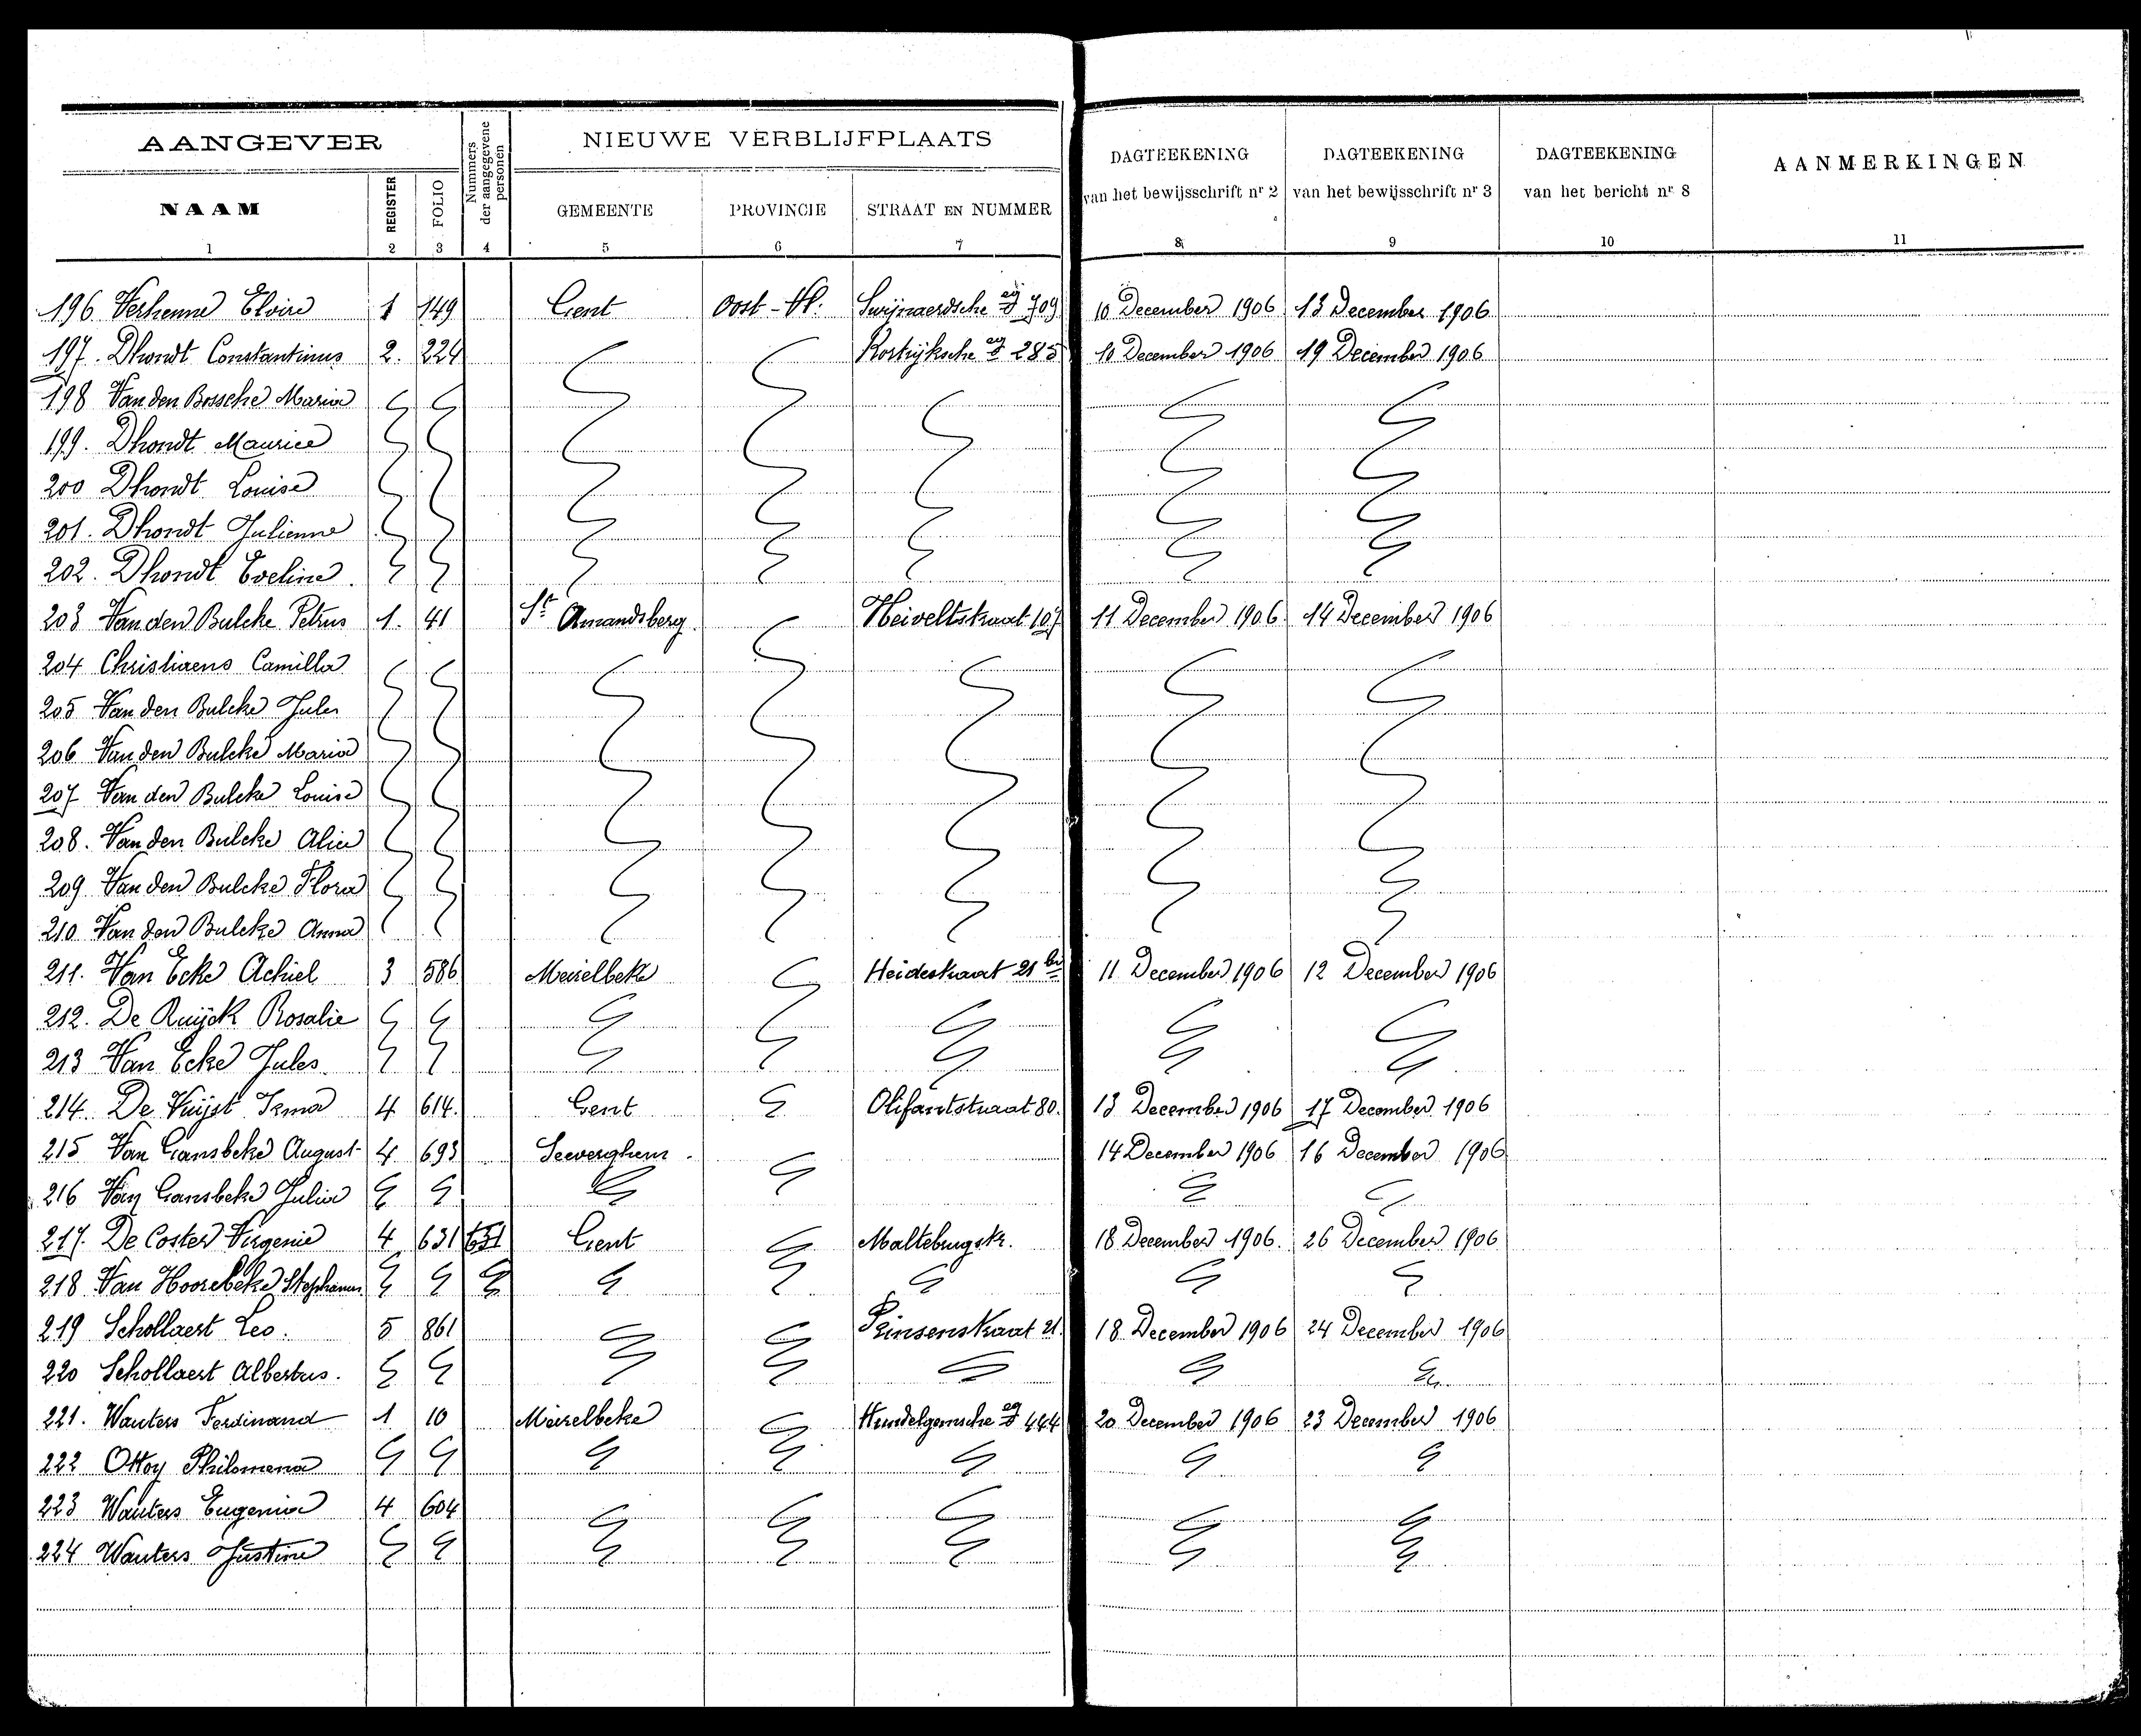 AANGEVER
Nummers der aangegevene personen
NIEUWE VERBLIJFPLAATS
DAGTEEKENING van het bewijsschrift nr 2
DAGTEEKENING van het bewijsschrift nr 3
DAGTEEKENING van het bericht nr 8
AANMERKINGEN
NAAM REGISTER FOLIO GEMEENTE PROVINCIE STRAAT EN NUMMER
1 2 3 4 5 6 7 8 9 10 11
196 Verhenne Elvire 1 149 Gent Oost-Vl. Swijnaerdsche 709 10 December 1906 13 December 1906
197. Dhondt Constantinus 2. 224 Kortrijksche 285 10 December 1906 19 December 1906
198 Van den Bossche Maria
199. Dhondt Maurice
200 Dhondt Louise
201. Dhondt Julienne
202. Dhondt Eveline.
203 Van den Bulcke Petrus 1. 41 St Amandsberg. Heiveltstraat 107 11 December 1906. 14 December 1906
204 Christiaens Camilla
205 Van den Bulcke Jules
206 Van den Bulcke Maria
207 Van den Bulcke Louise
208. Van den Bulcke Alice
209 Van den Bulcke Flora
210 Van den Bulcke Anna
211. Van Ecke Achiel 3 586 Meirelbeke Heidestraat 21 11 December 1906 12 December 1906
212. De Ruijck Rosalie
213 Van Ecke Jules.
214. De Vuijst Irma 4 614. Gent Olifantstraat 80. 13 December 1906 17 December 1906
215 Van Gansbeke August 4 693 Seeverghem. 14 December 1906 16 December 1906
216 Van Gansbeke Julia
217. De Coster Virgenie 4 631 Gent Maltebrugstr. 18 December 1906. 26 December 1906
218 Van Hoorebeke Stephanus
219 Schollaert Leo. 5 861 Prinsenstraat 21. 18 December 1906 24 December 1906
220 Schollaert Albertus.
221. Wauters Ferdinand 1 10 Meirelbeke Hundelgemsche 444 20 December 1906 23 December 1906
222 Ottoy Philomena
223 Wauters Eugenia 4 604
224 Wauters Justine